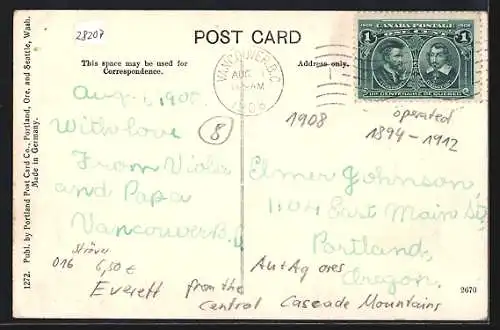 28207
POST CARD
This space may be used for
Correspondence.
Address only.
VANCOUVER, B.C.
AUG 1
AM
1908
1608 1908
CANADA POSTAGE
ONE CENT
1 1
IIIE CENTENAIRE DE QUEBEC
Aug. 1, 1908
With love
From Viola
and Papa
Vancouver B.C
8
1908
operated
1894-1912
Elmer Johnson,
1104 East Main St
Portland
Oregon.
016 6,50 €
Everett from the
Central Cascade Mountains
Au + Ag ores
2670
1272. Publ. by Portland Post Card Co., Portland, Ore. and Seattle, Wash.
Made in Germany.